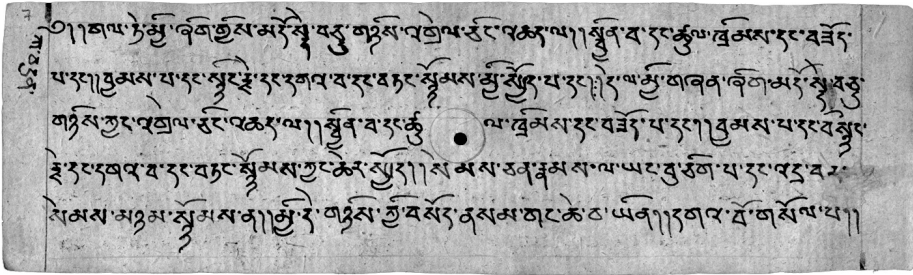 ༄།།གལ་ཏེ་མྱི་ཞིག་གྱིས་མདོ་སྡེ་བཅུ་གཉིས་འགྲེལ་ཅིང་འཆད་ལ།།སྦྱིན་བ་དང་ཚུལ་ཁྲིམས་དང་བཟོད་
པ་དང།།བྱམས་པ་དང་སྙིང་རྗེ་དང་དགའ་བ་དང་བཏང་སྙོམས་མྱི་སྤྱོད་པ་དང།།དེ་ལ་མྱི་གཞན་ཞིག་མདོ་སྡེ་བཅུ་
གཉིས་ཀྱང་འགྲེལ་ཅིང་འཆད་ལ།།སྦྱིན་བ་དང་ཚུལ་ཁྲིམས་དང་བཟོད་པ་དང།།བྱམས་པ་དང་སྙིང་
རྗེ་དང་དགའ་བ་དང་བཏང་སྙོམས་ཀྱང་ཆེར་སྤྱོད།།སེམས་ཅན་རྣམས་ལ་ཡང་བུ་ཅིག་པ་དང་འདྲ་བར་
སེམས་མཉམ་སྙོམས་ན།།མྱི་དེ་གཉིས་ཀྱི་བསོད་ནམས་གང་ཆེ་བ་ཡིན།།དགའ་བོ་གསོལ་པ།།